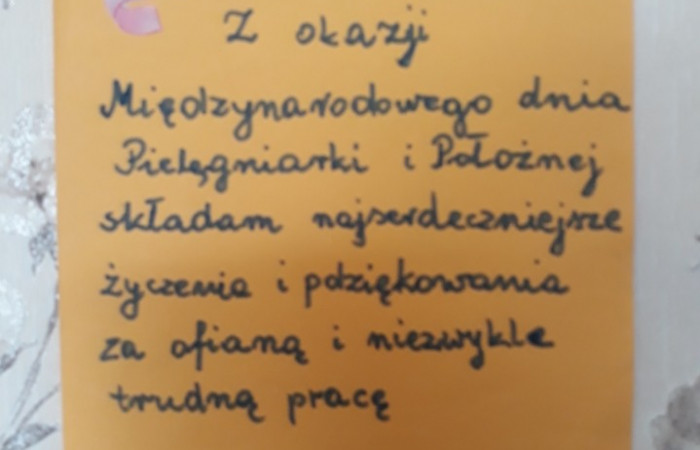 Z okazji
Międzynarodowego dnia
Pielęgniarki i Położnej
składam najserdeczniejsze
życzenia i pdziękowania
za ofianą i niezwykle
trudną pracę